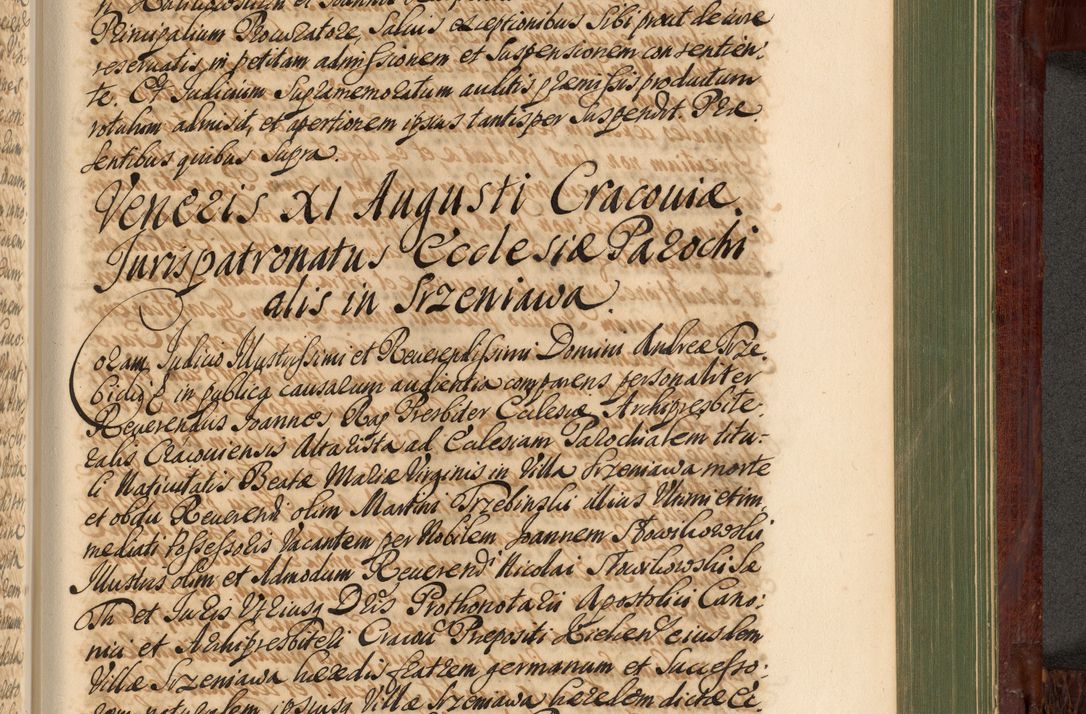 Principalium Procuratore, Salvis exceptionibus Sibi prout de iure
reservatis, in petitam admissionem et Suspensionem consentien-
te. Et Iudicium Supramemoratum auditis præmissis productum
rotulum admisit, et apertionem ipsius tantisper Suspendit. Præ
sentibus quibus Supra.
Veneris XI Augusti Cracoviæ.
Jurispatronatus Ecclesiæ Parochi
alis in Srzeniawa.
Coram Judicio Illustrissimi et Reverendissimi Domini Andreæ Trze-
bicki E in publica causarum audientia comparens personaliter
Reverendus Joannes Raj Presbiter Eclesiæ Archipresbite-
ralis Cracoviensis Altarista ad Ecclesiam Parochialem titu-
li Nativitatis Beatæ Mariæ Virginis in Villa Srzeniawa morte
et obitu Reverendi olim Martini Trzebinski illius Ultimi et im
mediati Possessoris Vacantem per Nobilem Joannem Słowikowski
Illustris olim et Admodum Reverendi Nicolai Słowikowski Sæ
Th et Juris Utriusq Dris Prothonotarii Apostolici Cano-
nici et Archipresbiteri Cracov Præpositi Kielcen eiusdem
Villæ Srzeniawa hæredis fratrem germanum et Successo-
rem naturalem ipsiusq Villæ Srzeniawa hæredem dictæ Ec